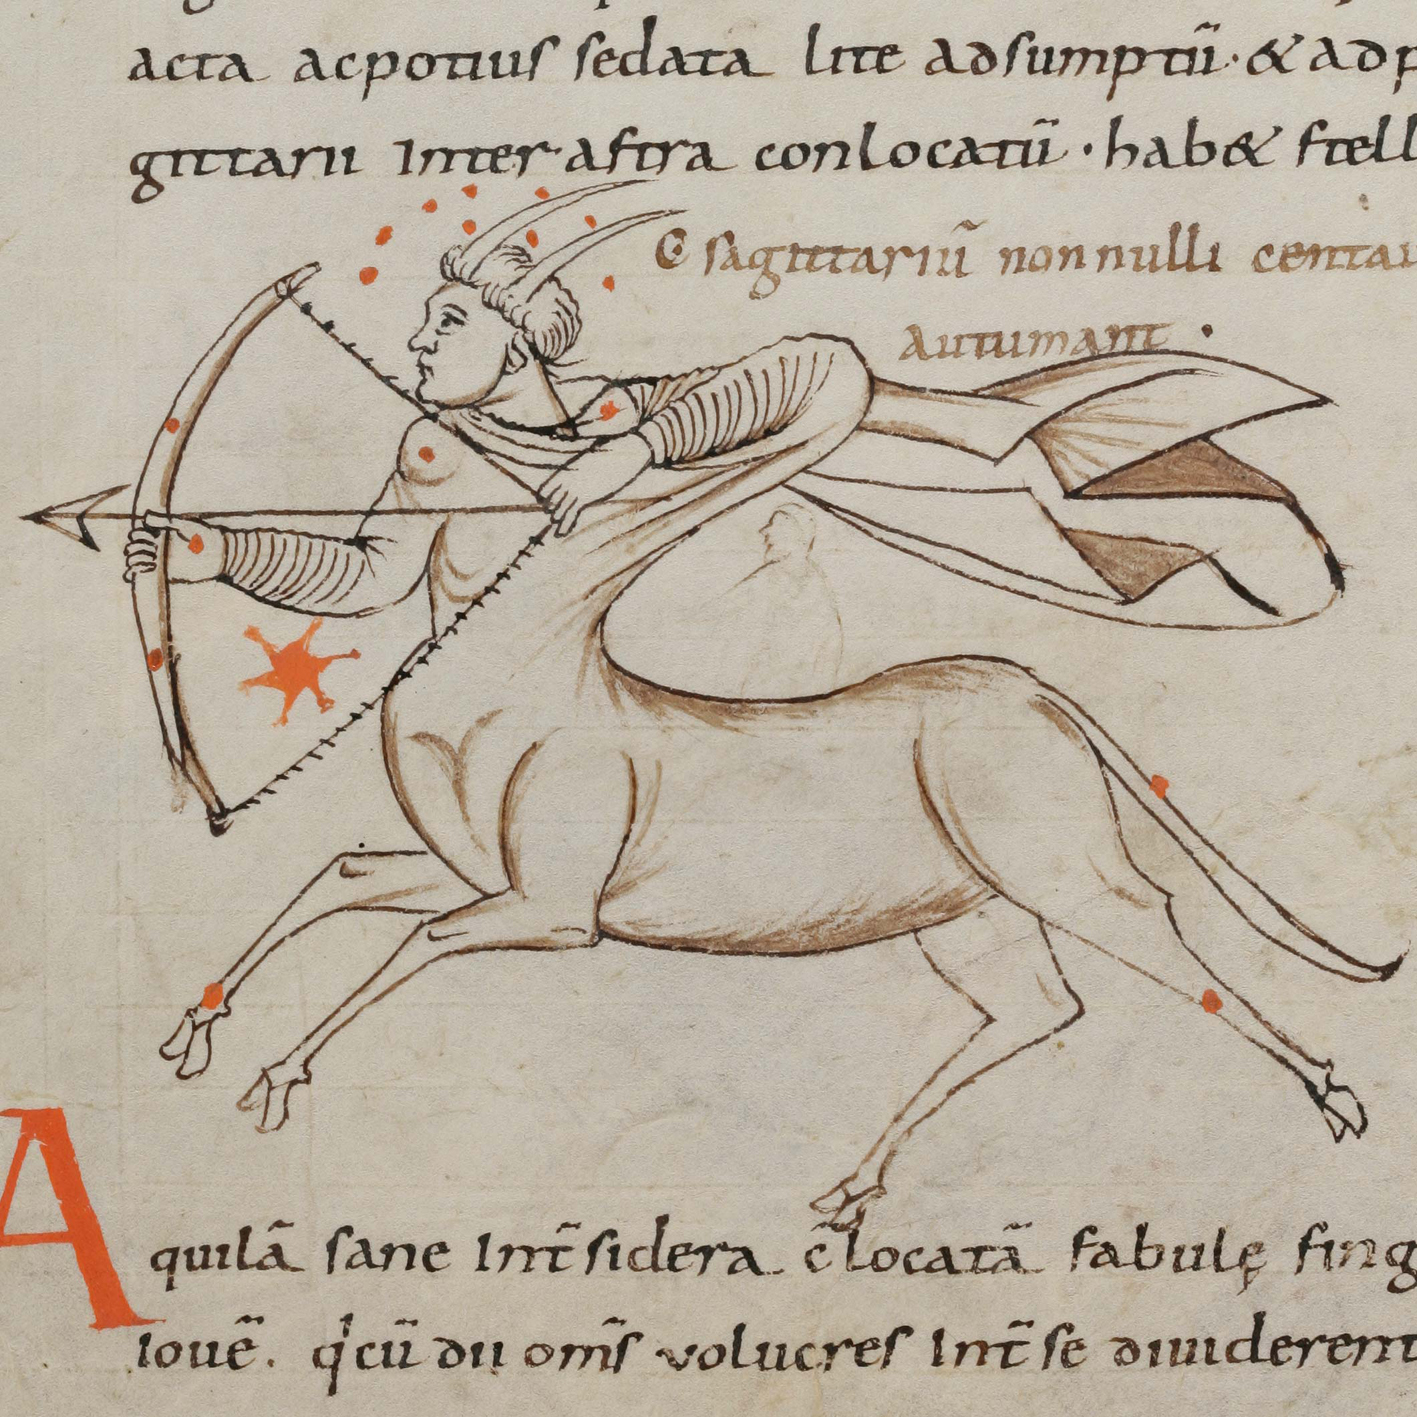 acta acpotius sedata lite adsumptū · & adp
gittarii inter astra conlocatū · hab& stell
sagittariū nonnulli centau
autumant ·
Aquilā sane int̄ sidera c̄locatā fabulę fing
iouē. qͥcū dii om̄s volucres int̄ se diuiderent